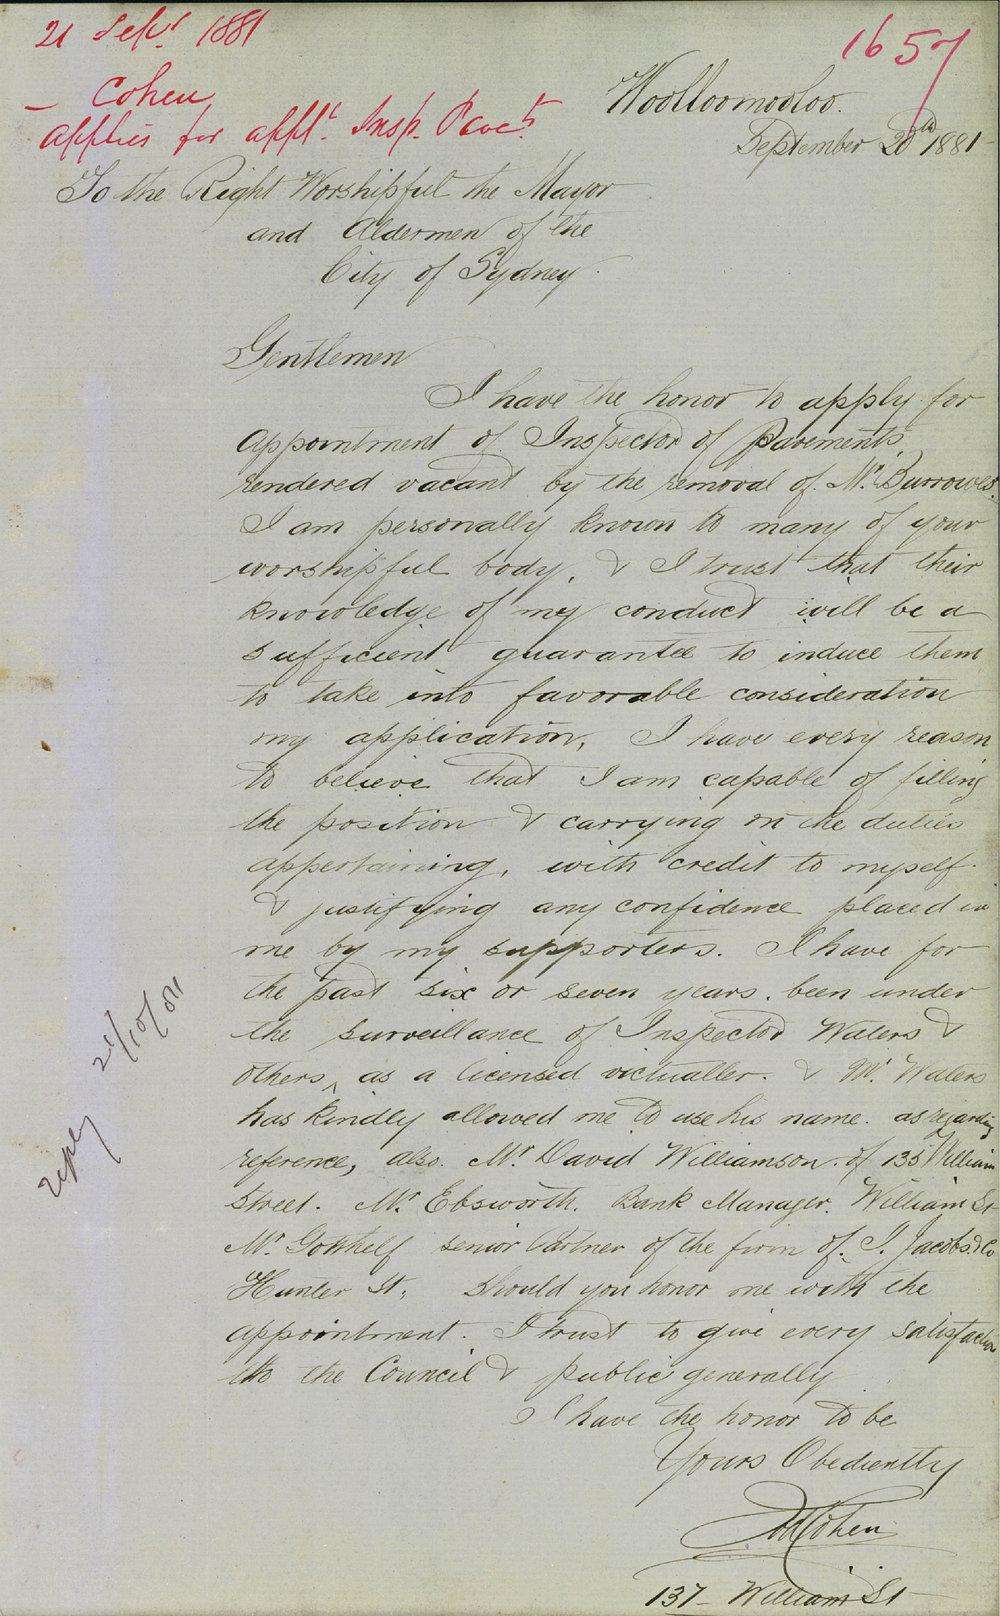 21 Sept 1881
1657
– Cohen
applies for appt. Insp. Pavets.
Woolloomooloo.
September 20th 1881
To the Right Worshipful the Mayor
and Aldermen of the
City of Sydney.
Gentlemen
I have the honor to apply for
appointment of Inspector of Pavements,
rendered vacant by the removal of Mr. Burrowes.
I am personally known to many of your
worshipful body, & I trust that their
knowledge of my conduct will be a
sufficient guarantee to induce them
to take into favorable consideration
my application, I have every reason
to believe that I am capable of filling
the position & carrying on the duties
appertaining, with credit to myself
& justifying any confidence placed in
me by my supporters. I have for
the past six or seven years. been under
the surveillance of Inspector Waters &
others ‸ as a licensed victualler. & Mr. Waters
has kindly allowed me to use his name. as regarding
reference, also. Mr David Williamson. of 135 William
Street. Mr. Ebsworth. Bank Manager. William St
Mr. Gotthelf senior Partner of the firm of. I. Jacobs & Co
Hunter St. Should you honor me with the
appointment. I trust to give every satisfaction
to the Council & public generally
I have the honor to be
Yours Obediently
Cohen
137 – William St
reply 21/10/81